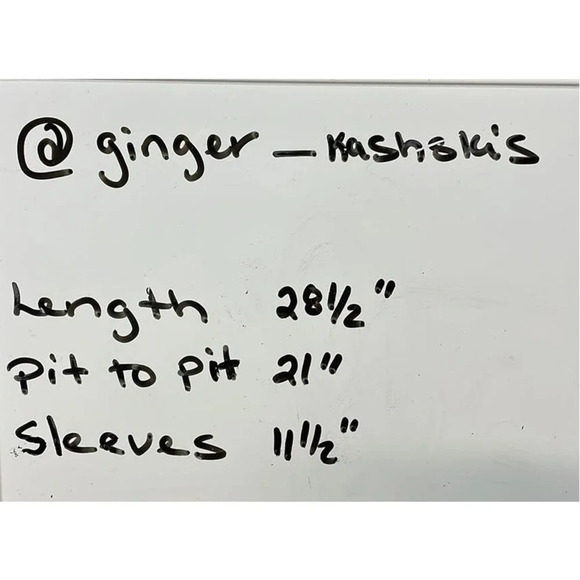 @ginger_kashskis
Length 28 1/2"
Pit to pit 21"
Sleeves 11 1/2"